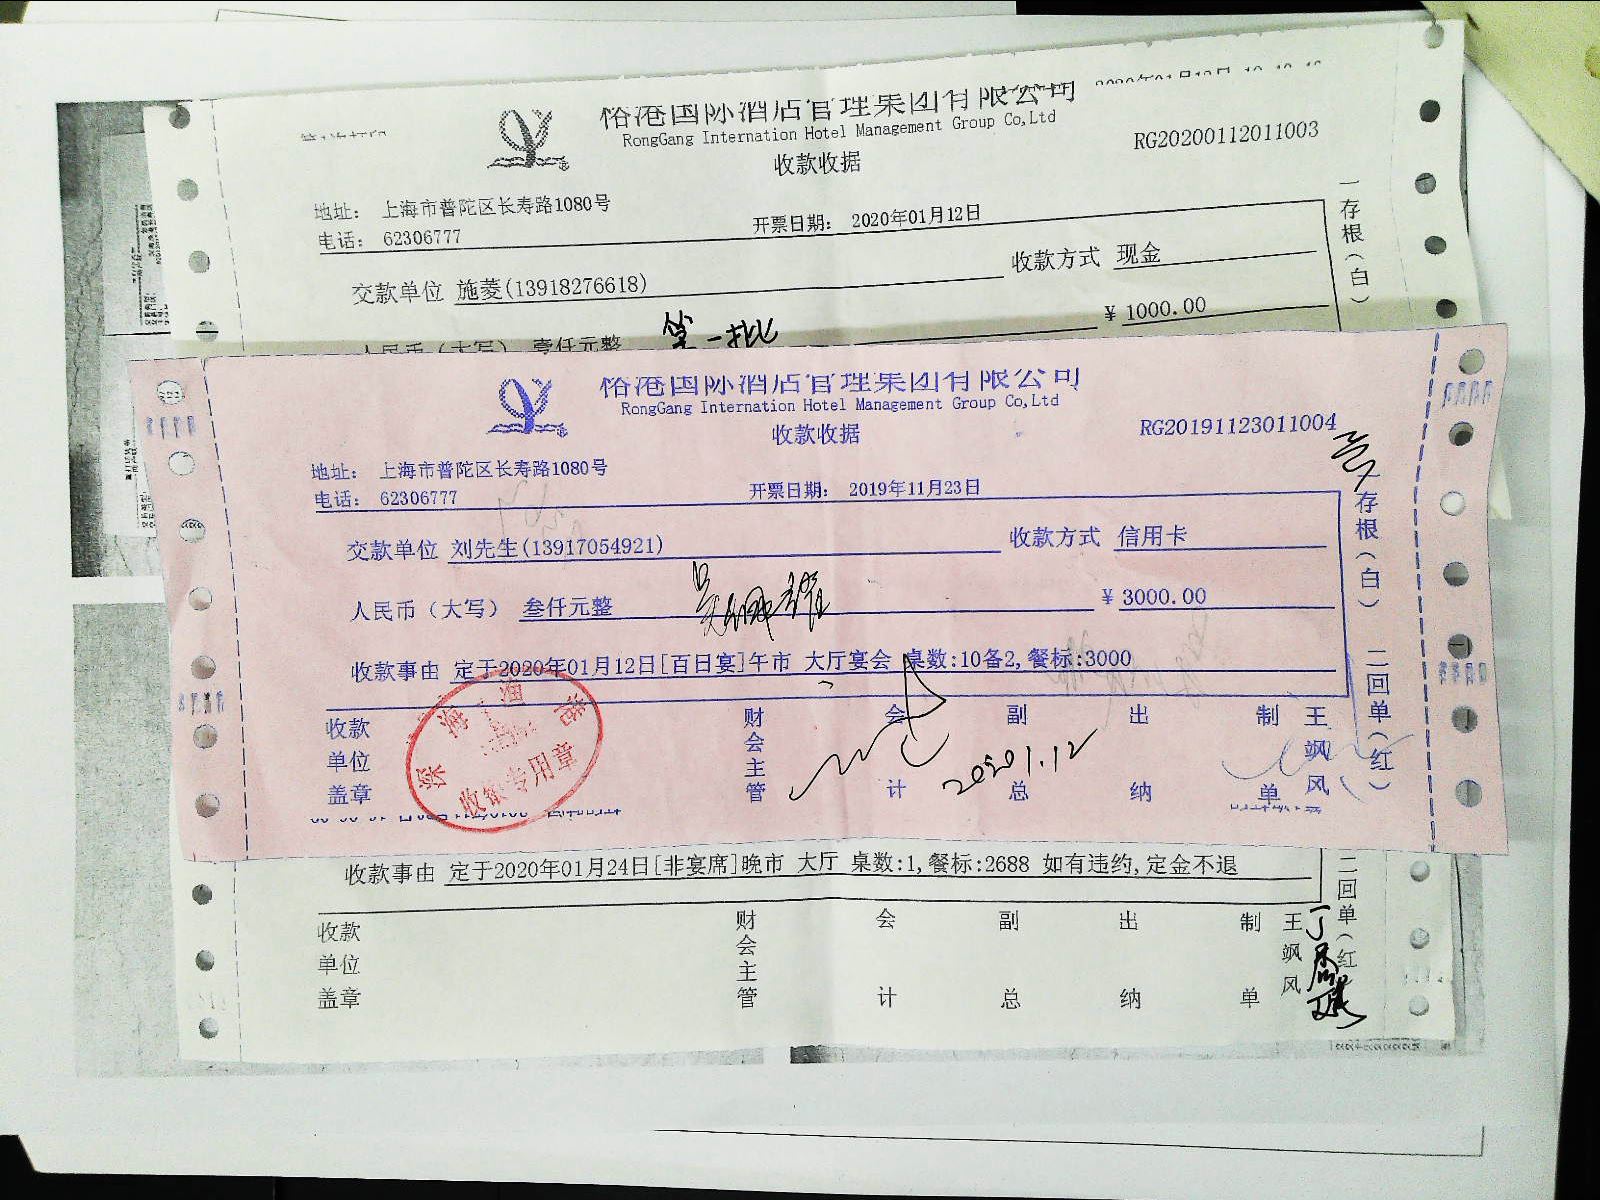 裕港国际酒店管理集团有限公司
RongGang Internation Hotel Management Group Co,Ltd
收款收据
RG20200112011003
地址： 上海市普陀区长寿路1080号
电话： 62306777
开票日期： 2020年01月12日
一存根（白）
交款单位 施菱(13918276618)
收款方式 现金
人民币（大写） 壹仟元整
¥ 1000.00
第一批
裕港国际酒店管理集团有限公司
RongGang Internation Hotel Management Group Co,Ltd
收款收据
RG20191123011004
地址： 上海市普陀区长寿路1080号
电话： 62306777
开票日期： 2019年11月23日
一存根（白） 二回单（红）
交款单位 刘先生(13917054921)
收款方式 信用卡
人民币（大写） 叁仟元整
¥ 3000.00
收款事由 定于2020年01月12日[百日宴]午市 大厅宴会 桌数:10备2,餐标:3000
收款单位盖章
财会主管
会计
副总
出纳
制单
王飒风
2020.1.12
收银专用章
收款事由 定于2020年01月24日[非宴席]晚市 大厅 桌数:1,餐标:2688 如有违约,定金不退
二回单（红
收款单位盖章
财会主管
会计
副总
出纳
制单
王飒风